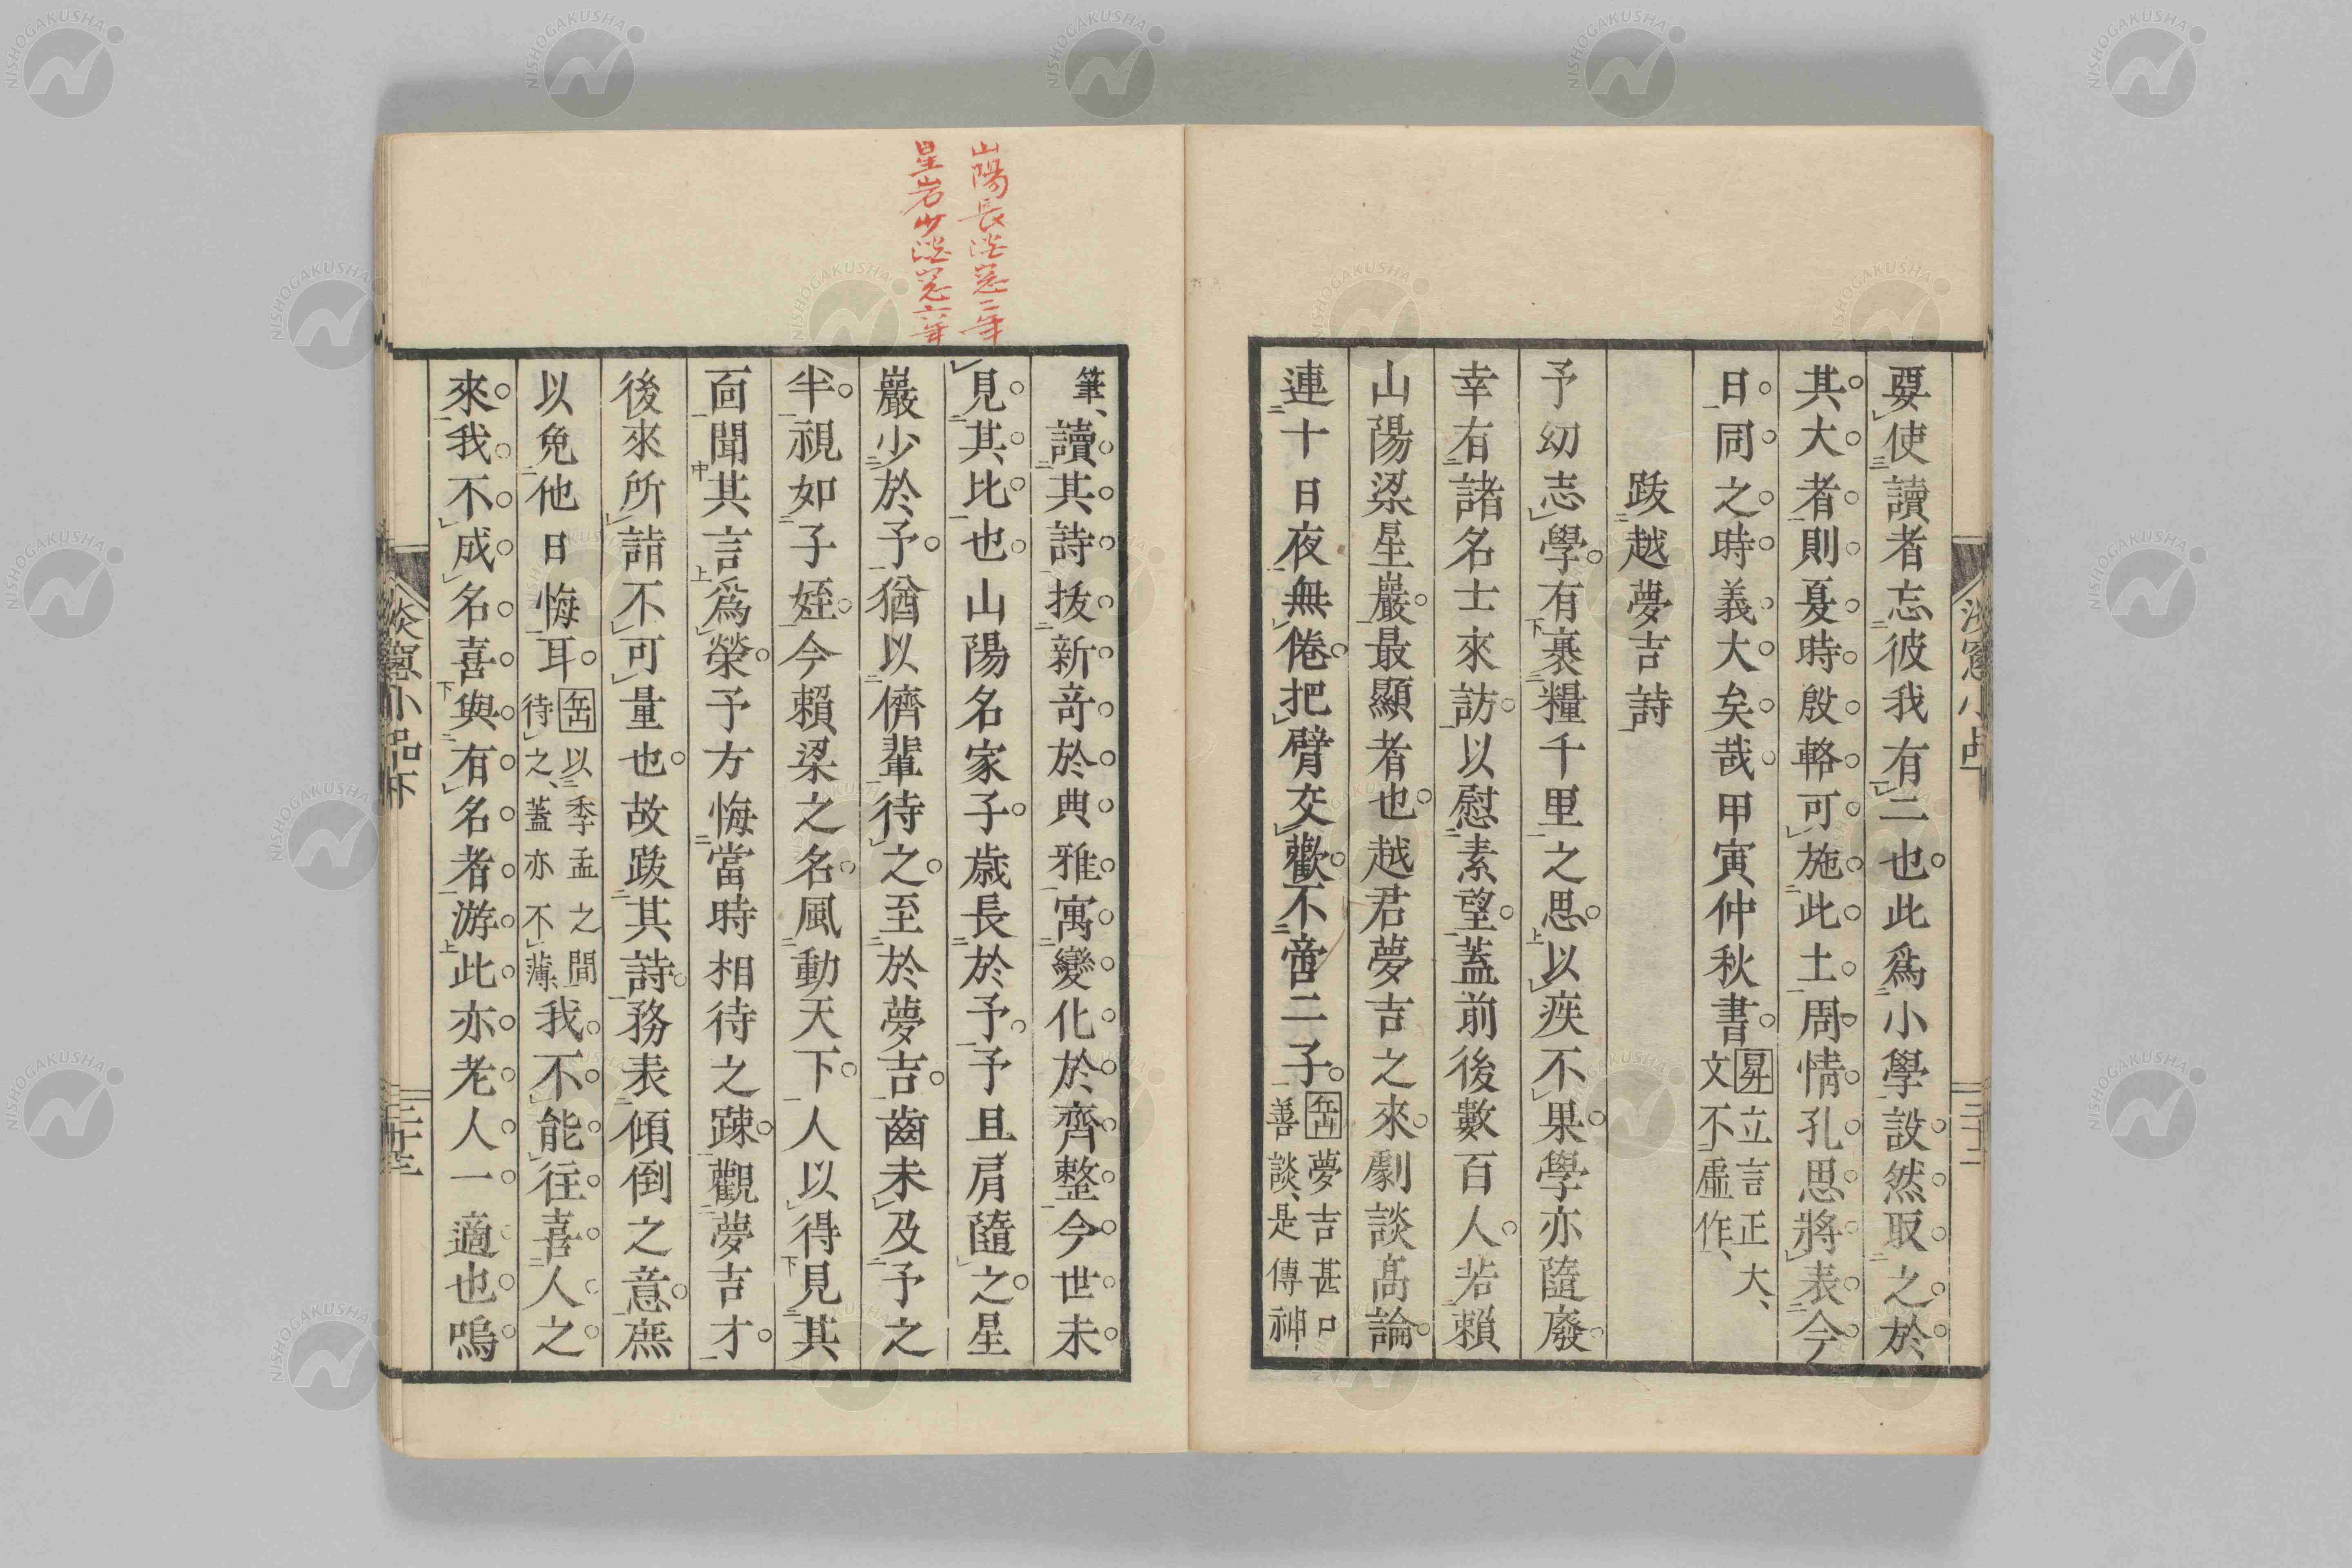 要使讀者忘彼我有二也此爲小學設然取之於
其大者則夏時殷輅可施此土周情孔思將表今
日同之時義大矣哉甲寅仲秋書昇立言正大、
文不虛作、
跋越夢吉詩
予幼志學有裹糧千里之思以疾不果學亦隨廢
幸有諸名士來訪以慰素望蓋前後數百人若賴
山陽梁星巖最顯者也越君夢吉之來劇談髙論
連十日夜無倦把臂交歡不啻二子
夢吉甚口
善談、是傳神
筆、讀其詩抜新竒於典雅寓變化於齊整今世未
見其比也山陽名家子歳長於予予且肩隨之星
巖少於予猶以儕輩待之至於夢吉齒未及予之
半視如子姪今賴梁之名風動天下人以得見其
面聞其言爲榮予方悔當時相待之踈觀夢吉才
後來所詣不可量也故跋其詩務表傾倒之意庶
以免他日悔耳
以季孟之間
待之、蓋亦不薄、
我不能往喜人之
來我不成名喜與有名者游此亦老人一適也嗚
山陽長淡窓二年
星岩少淡窓六年
淡窻小品下
NISHOGAKUSHA